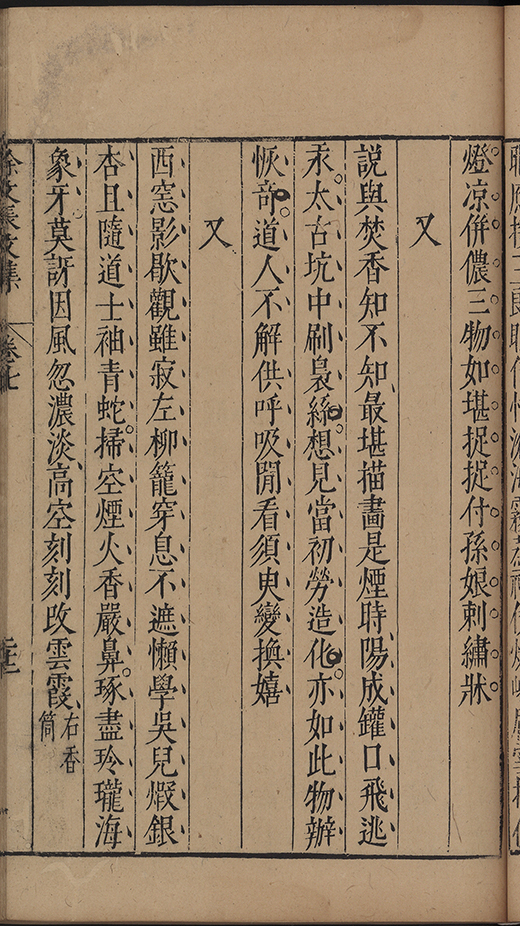 燈凉併儂三物如堪捉捉付孫娘刺繡牀
又
說與焚香知不知最堪描畫是煙時陽成罐口飛逃
汞太古坑中刷裊絲想見當初勞造化亦如此物辦
恢奇道人不解供呼吸閒看須臾變換嬉
又
西窓影歇觀雖寂左柳籠穿息不遮懶學吳兒煆銀
杏且隨道士袖青蛇掃空煙火香嚴鼻琢盡玲瓏海
象牙莫訝因風忽濃淡高空刻刻改雲霞右香
筒
徐文長文集
卷七